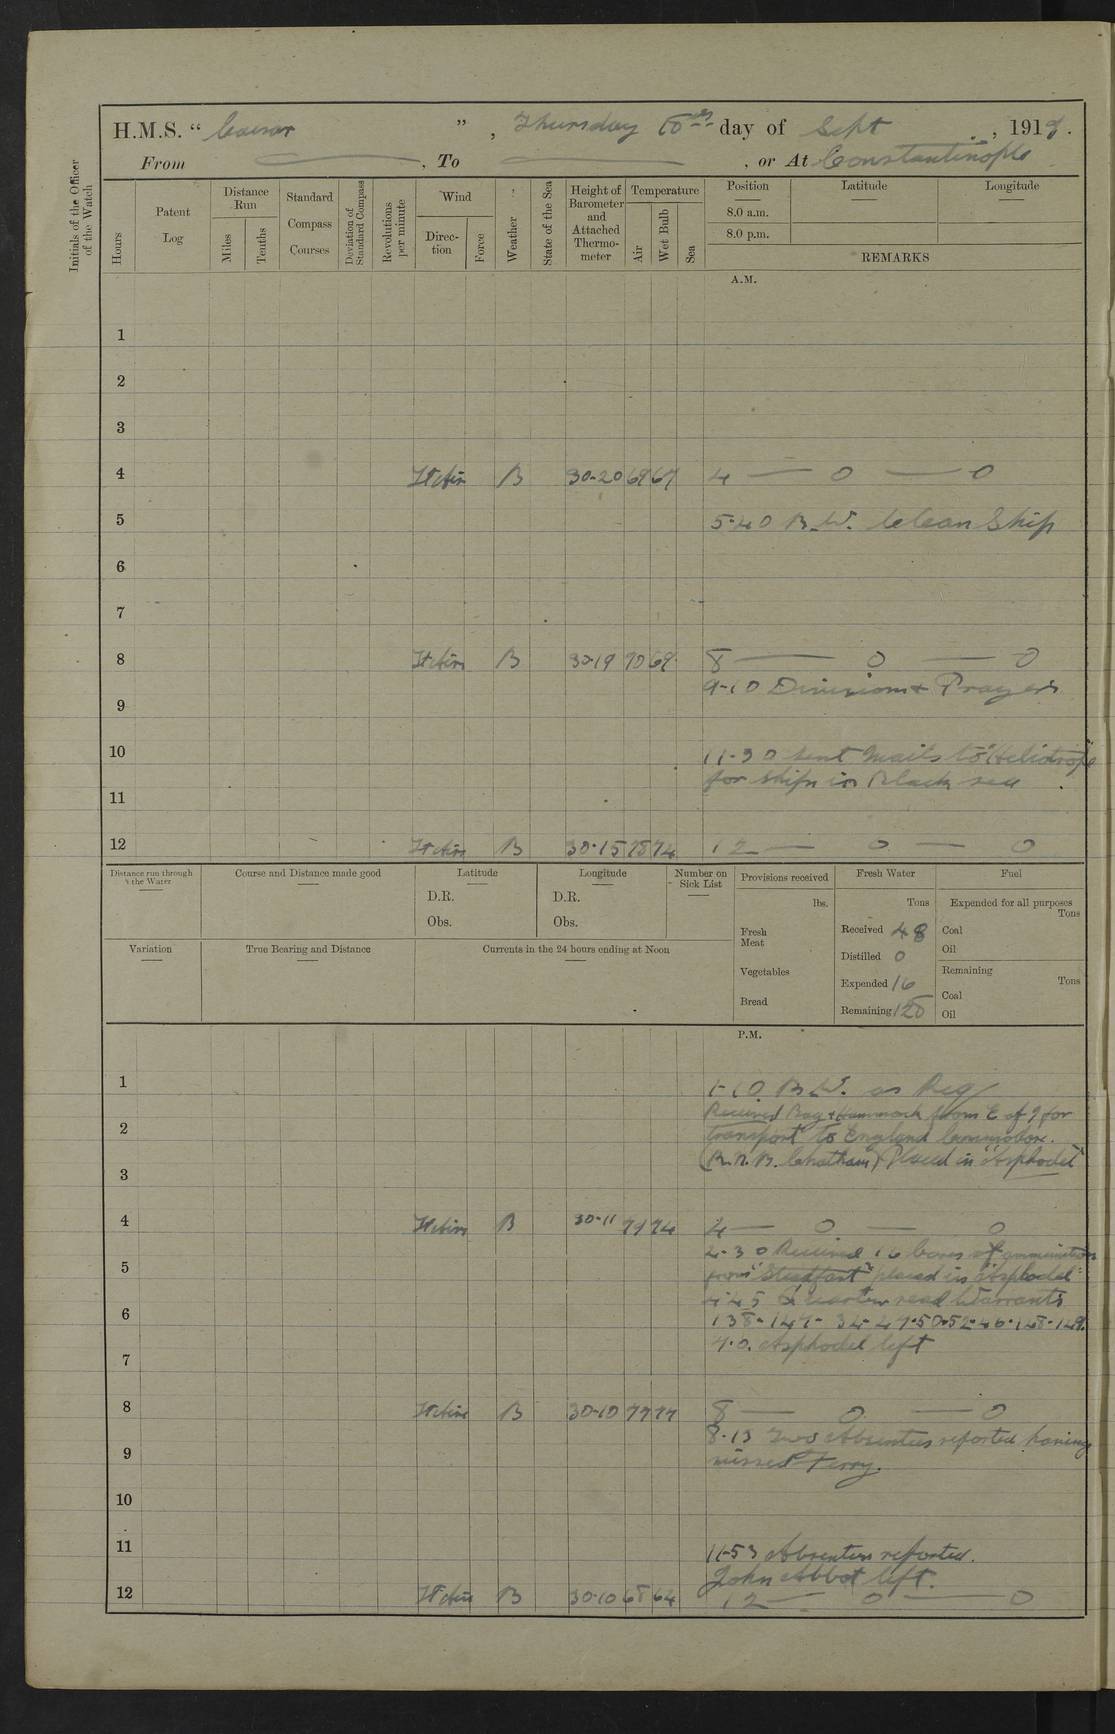 H.M.S. “ Caesar ”, Thursday day of Sept , 1919.
From , To , or At Constantinople
Initials of the Officer of the Watch
Hours
Patent Log
Distance Run
Miles
Tenths
Standard Compass Courses
Deviation of Standard Compass
Revolutions per minute
Wind
Direction
Force
Weather
State of the Sea
Height of Barometer and Attached Thermometer
Temperature
Air
Wet Bulb
Sea
Position Latitude Longitude
8.0 a.m.
8.0 p.m.
REMARKS
A.M.
1
2
3
4 Lt Airs B 30-20 69 67 4 — 0 — 0
5 5-40 B.W. Clean Ship
6
7
8 Lt Airs B 30-19 70 69 8 — 0 — 0
9-10 Divisions + Prayers
9
10 11-30 Sent Mails to "Heliotrope"
for ships in Black sea
11
12 Lt Airs B 30-15 78 74 12 — 0 — 0
Distance run through the Water
Course and Distance made good
Latitude
D.R.
Obs.
Longitude
D.R.
Obs.
Number on Sick List
Provisions received
lbs.
Fresh Meat
Vegetables
Bread
Fresh Water
Tons
Received 48
Distilled 0
Expended 16
Remaining 120
Fuel
Expended for all purposes
Tons
Coal
Oil
Remaining
Tons
Coal
Oil
Variation
True Bearing and Distance
Currents in the 24 hours ending at Noon
P.M.
1 1-10 B.W. as Req
Received Bag + Hammock from E of I for
2 transport to England
(R.N.B. Chatham) Placed in "Asphodel"
3
4 Lt Airs B 30-11 79 74 4 — 0 — 0
4-30 Received 16 boxes of ammunition
5 from "Steadfast" placed in "Asphodel"
4-45 Quarters read Warrants
6 138-147-34-47-50-52-46-148-149.
7.0. Asphodel left
7
8 Lt Airs B 30-10 77 77 8 — 0 — 0
8-13 Two Absentees reported having
9 missed Ferry.
10
11 11-53 Absentees reported.
John Abbot left.
12 Lt Airs B 30-10 68 64 12 — 0 — 0